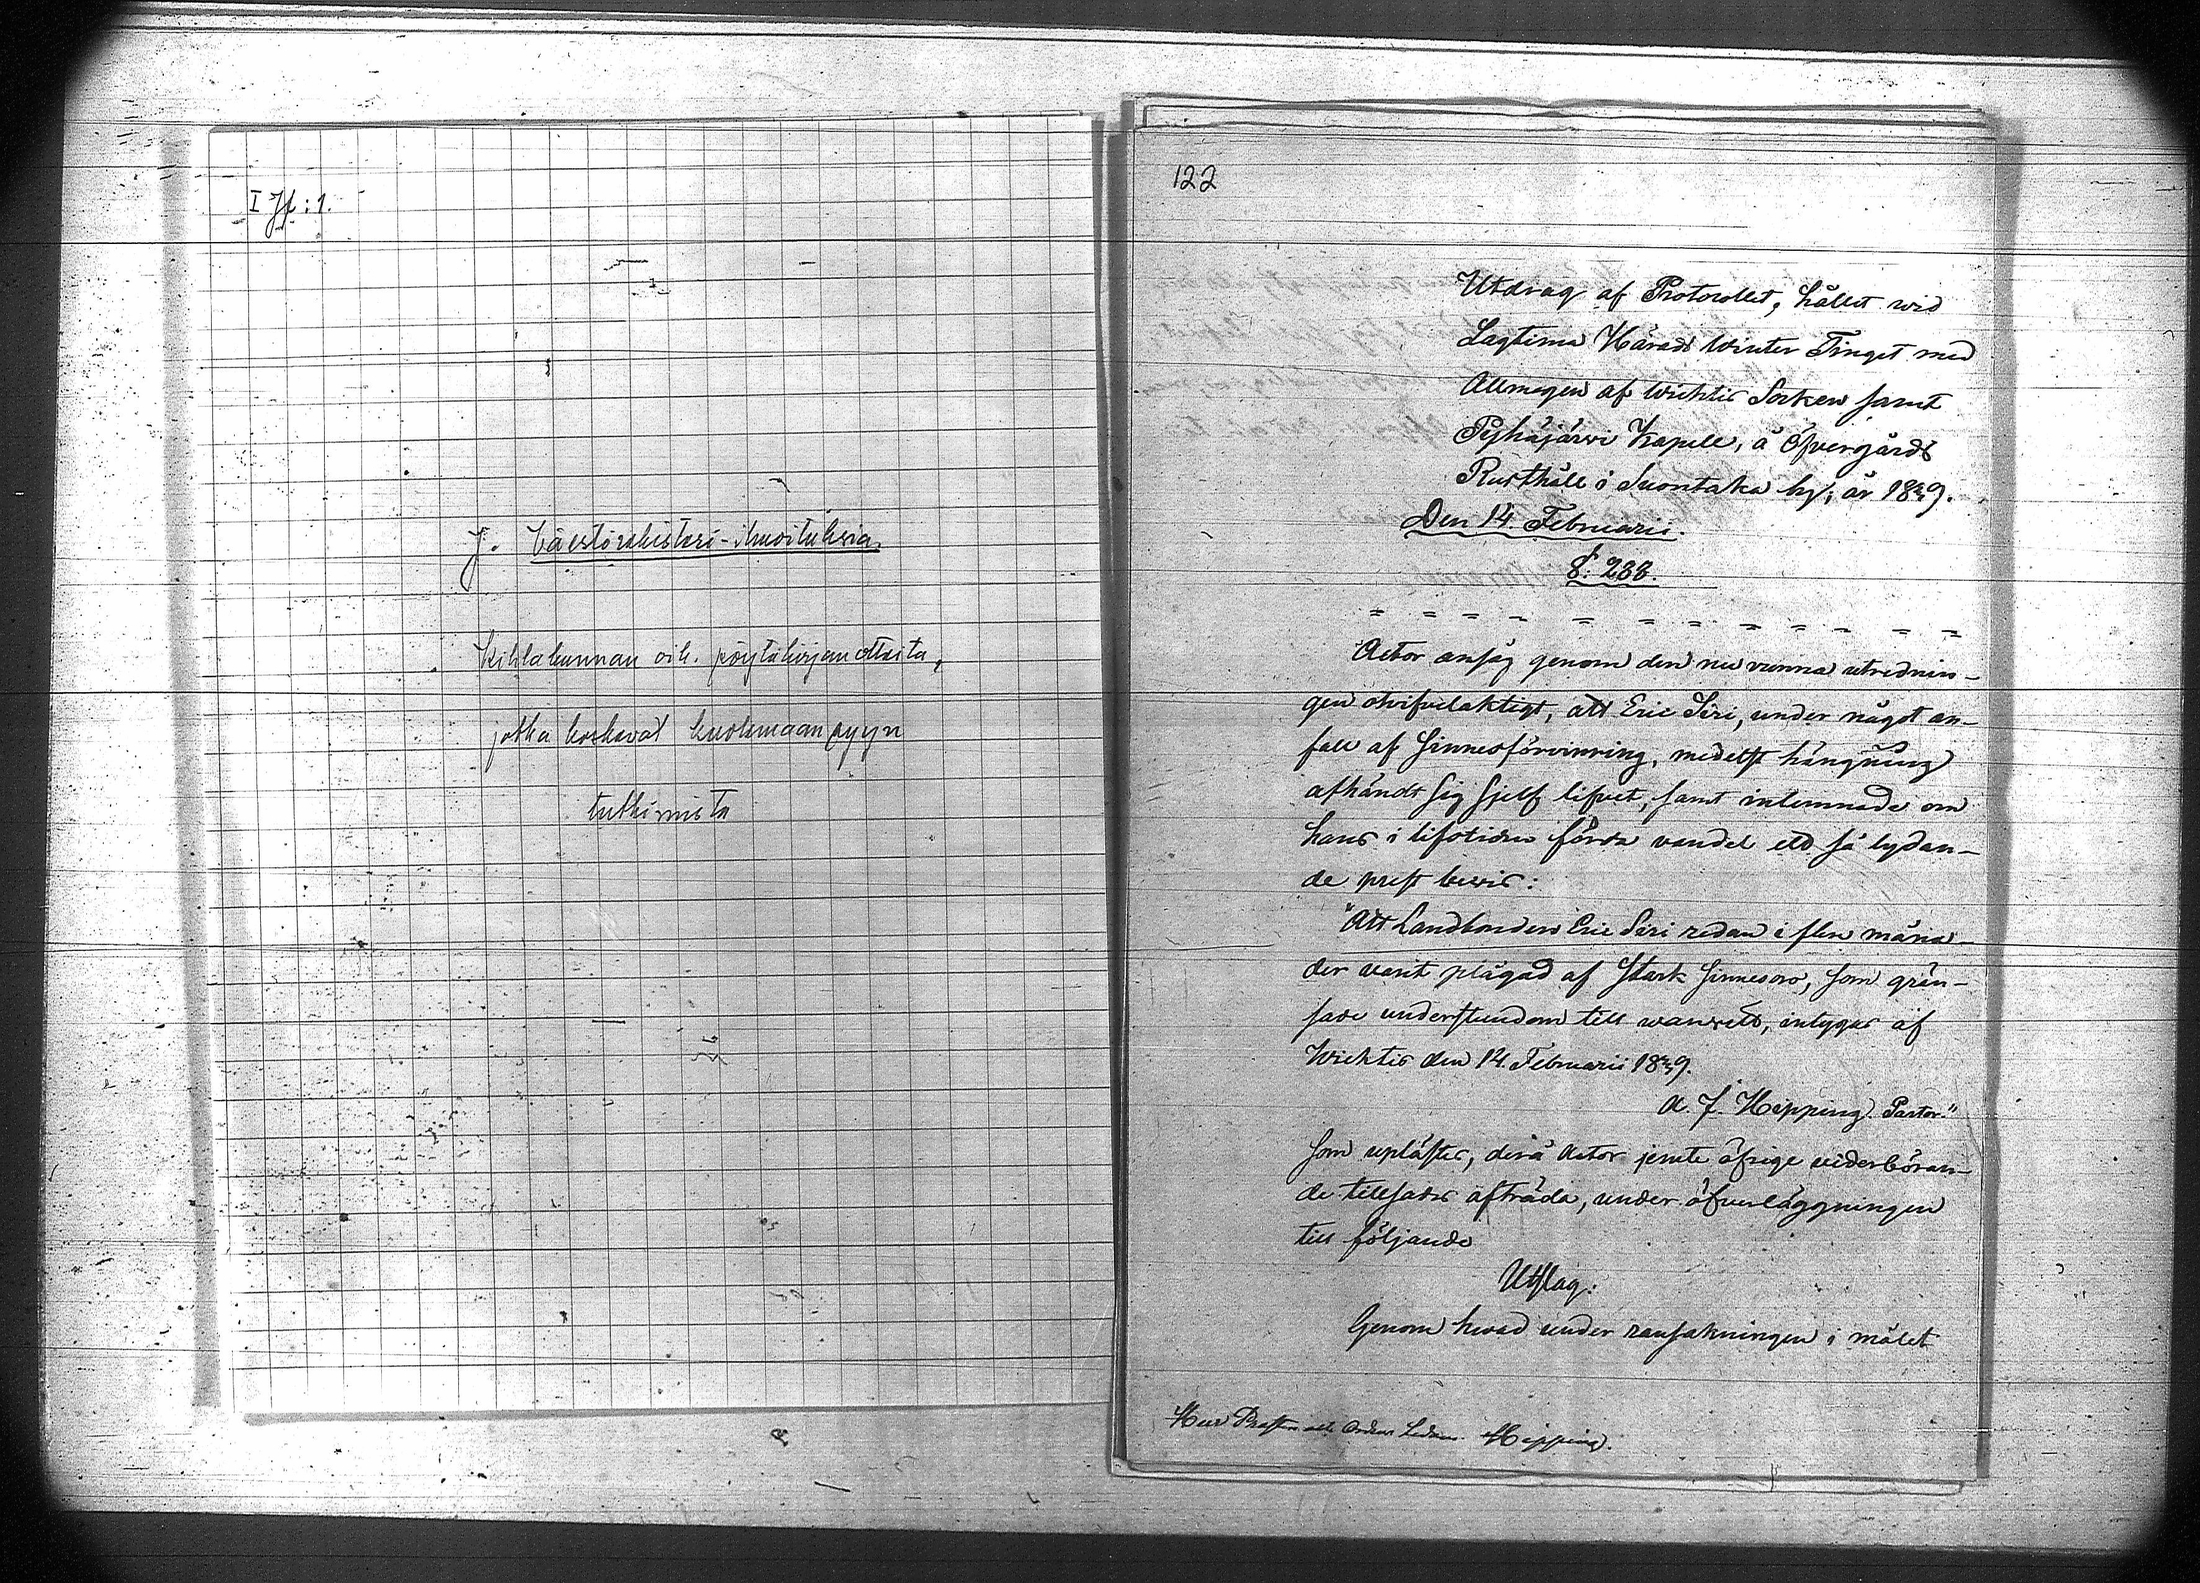 I Jf:1.
J. Väestörekisteri-ilmoituksia
Kihlakunnan oik. pöytäkirjanotteita,
jotka koskevat kuolemaansyyn
tutkimista
122
Utdrag af Protocollet, hållet wid
Lagtima Härads Winter Tinget med
Allmogen af Wichtis Socken samt
Pyhäjärwi Kapell, å Öfvergårds
Rusthåll i Suontaka by, år 1839.
Den 14. Februarii.
§. 288.
Actor ansåg genom den nu vunna utrednin-
gen otvifvelaktigt, att Eric Siri, under något an-
fall af sinnesförvirring, medelst hängning
afhändt sig sjelf lifvet, samt inlemnade om
hans i lifstiden förda vandel ett så lydan-
de prest bevis:
"Att Landbonden Eric Siri redan i flere måna-
der varit plågad af stark sinnesoro, som grän-
sade understundom till wanvett, intygas af
Wichtis den 14. Februarii 1839.
A. J. Hipping Pastor."
Som uplästes, derå Actor jemte öfrige vederböran-
de tillsades afträda, under öfverläggningen
till följande
Utslag:
Genom hvad under ransakningen i målet
Herr Prosten och Ordens Ledam. Hipping.